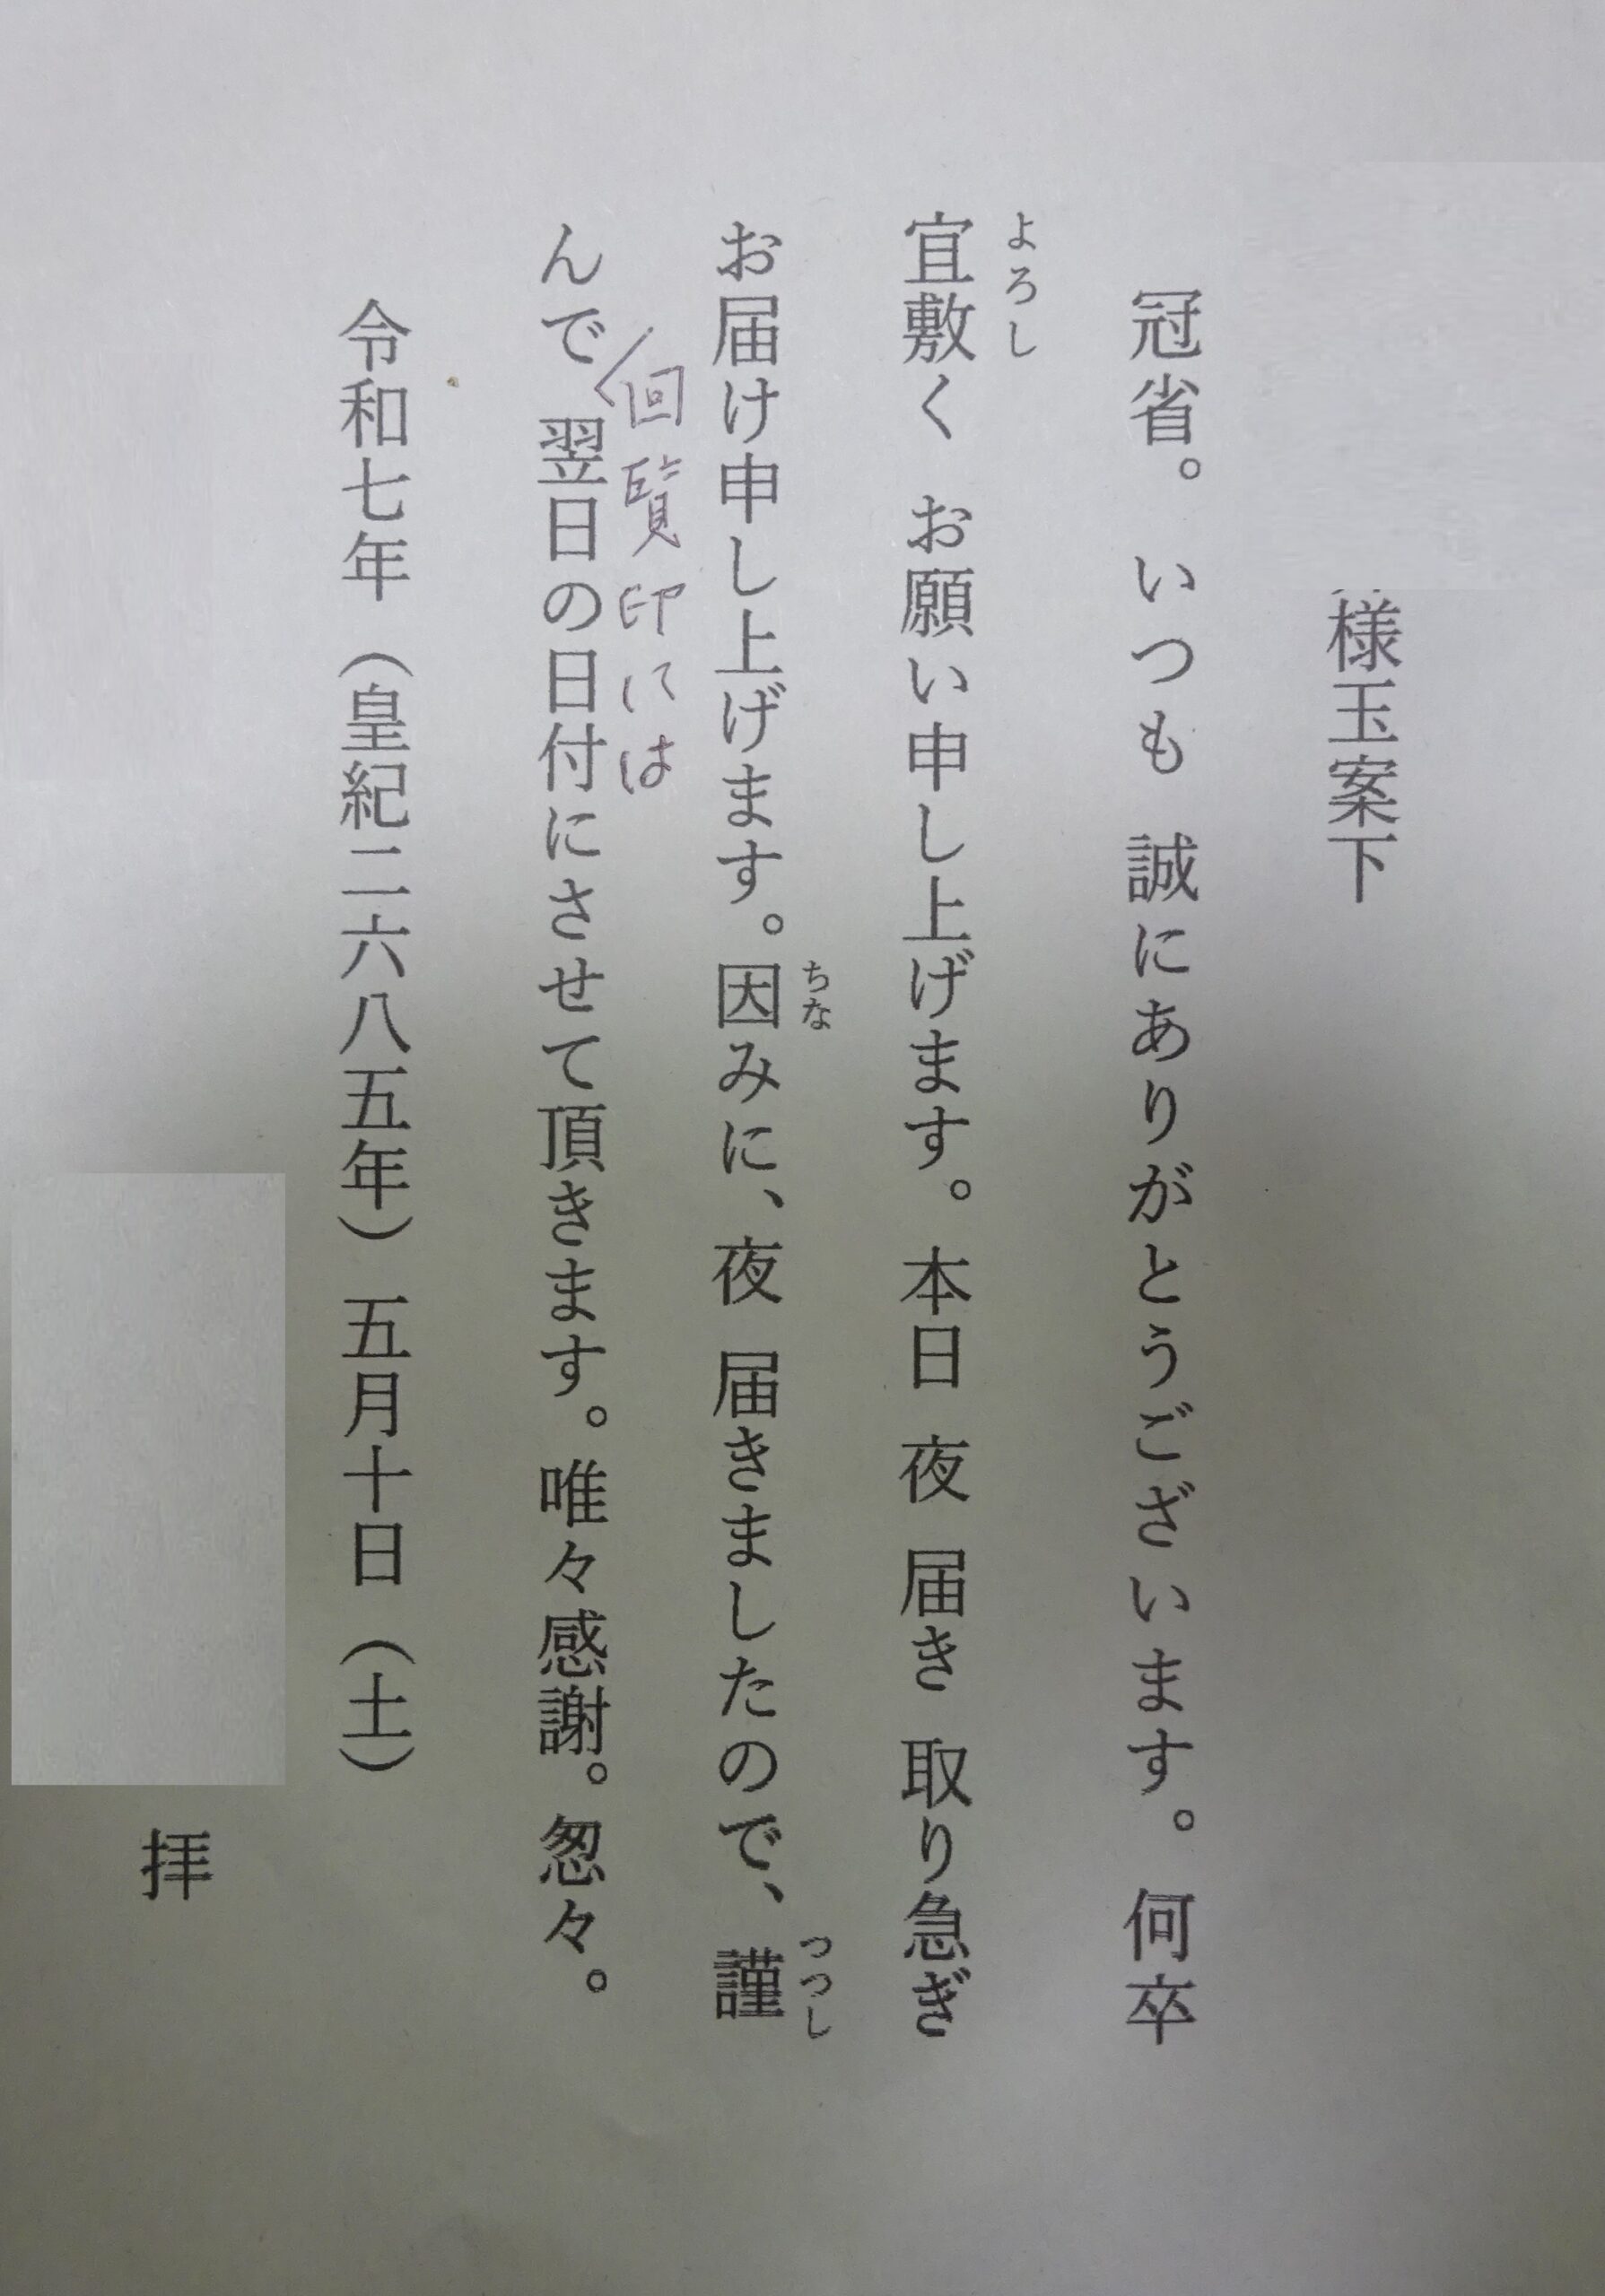 様玉案下
冠省。いつも 誠にありがとうございます。何卒
よろし
宜敷く お願い申し上げます。本日 夜 届き 取り急ぎ
ちな つつし
お届け申し上げます。因みに、夜 届きましたので、謹
回覧印には
んで 翌日の日付にさせて頂きます。唯々感謝。怱々。
令和七年（皇紀二六八五年）五月十日（土）
拝